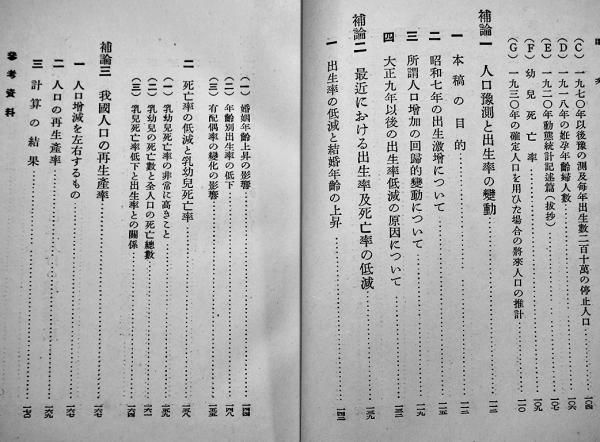 (C) 一九七〇年以後豫の測及每年出生數二百十萬の停止人口……一〇四
(D) 一九一八年の姙孕年齡婦人數……一〇六
(E) 一九二〇年動態統計記述篇(拔抄)……一〇七
(F) 幼兒死亡率……一〇九
(G) 一九三〇年の確定人口を用ひた場合の將來人口の推計……一一〇
補論一 人口豫測と出生率の變動……一一三
一 本稿の目的……一一三
二 昭和七年の出生激增について……一一五
三 所謂人口增加の回歸的變動について……一一九
四 大正九年以後の出生率低減の原因について……一三三
補論二 最近における出生率及死亡率の低減……一三九
一 出生率の低減と結婚年齡の上昇……一四三
(一) 婚姻年齡上昇の影響……一四四
(二) 年齡別出生率の低下……一四八
(三) 有配偶率の變化の影響……一五三
二 死亡率の低減と乳幼兒死亡率……一五九
(一) 乳幼兒死亡率の非常に高きこと……一五九
(二) 乳幼兒の死亡數と全人口の死亡總數……一六一
(三) 乳兒死亡率低下と出生率との關係……一六四
補論三 我國人口の再生產率……一六七
一 人口增減を左右するもの……一六七
二 人口の再生產率……一六九
三 計算の結果……一七〇
參考資料